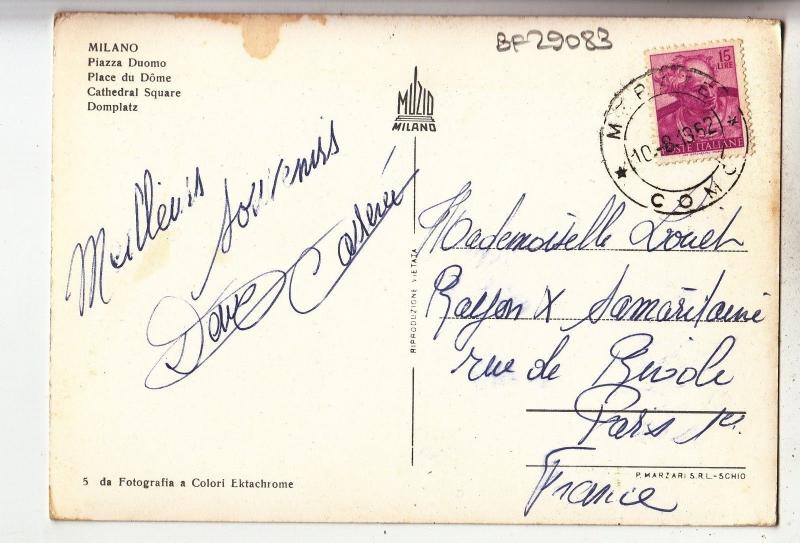 BF29083
MILANO
Piazza Duomo
Place du Dôme
Cathedral Square
Domplatz
MUZIO
MILANO
15
LIRE
POSTE ITALIANE
COMO
Meilleurs
Souvenirs
RIPRODUZIONE VIETATA
Mademoiselle Louet
Rayon X Samaritaine
rue de Rivoli
Paris 1er
France
5 da Fotografia a Colori Ektachrome
P. MARZARI S.R.L.-SCHIO